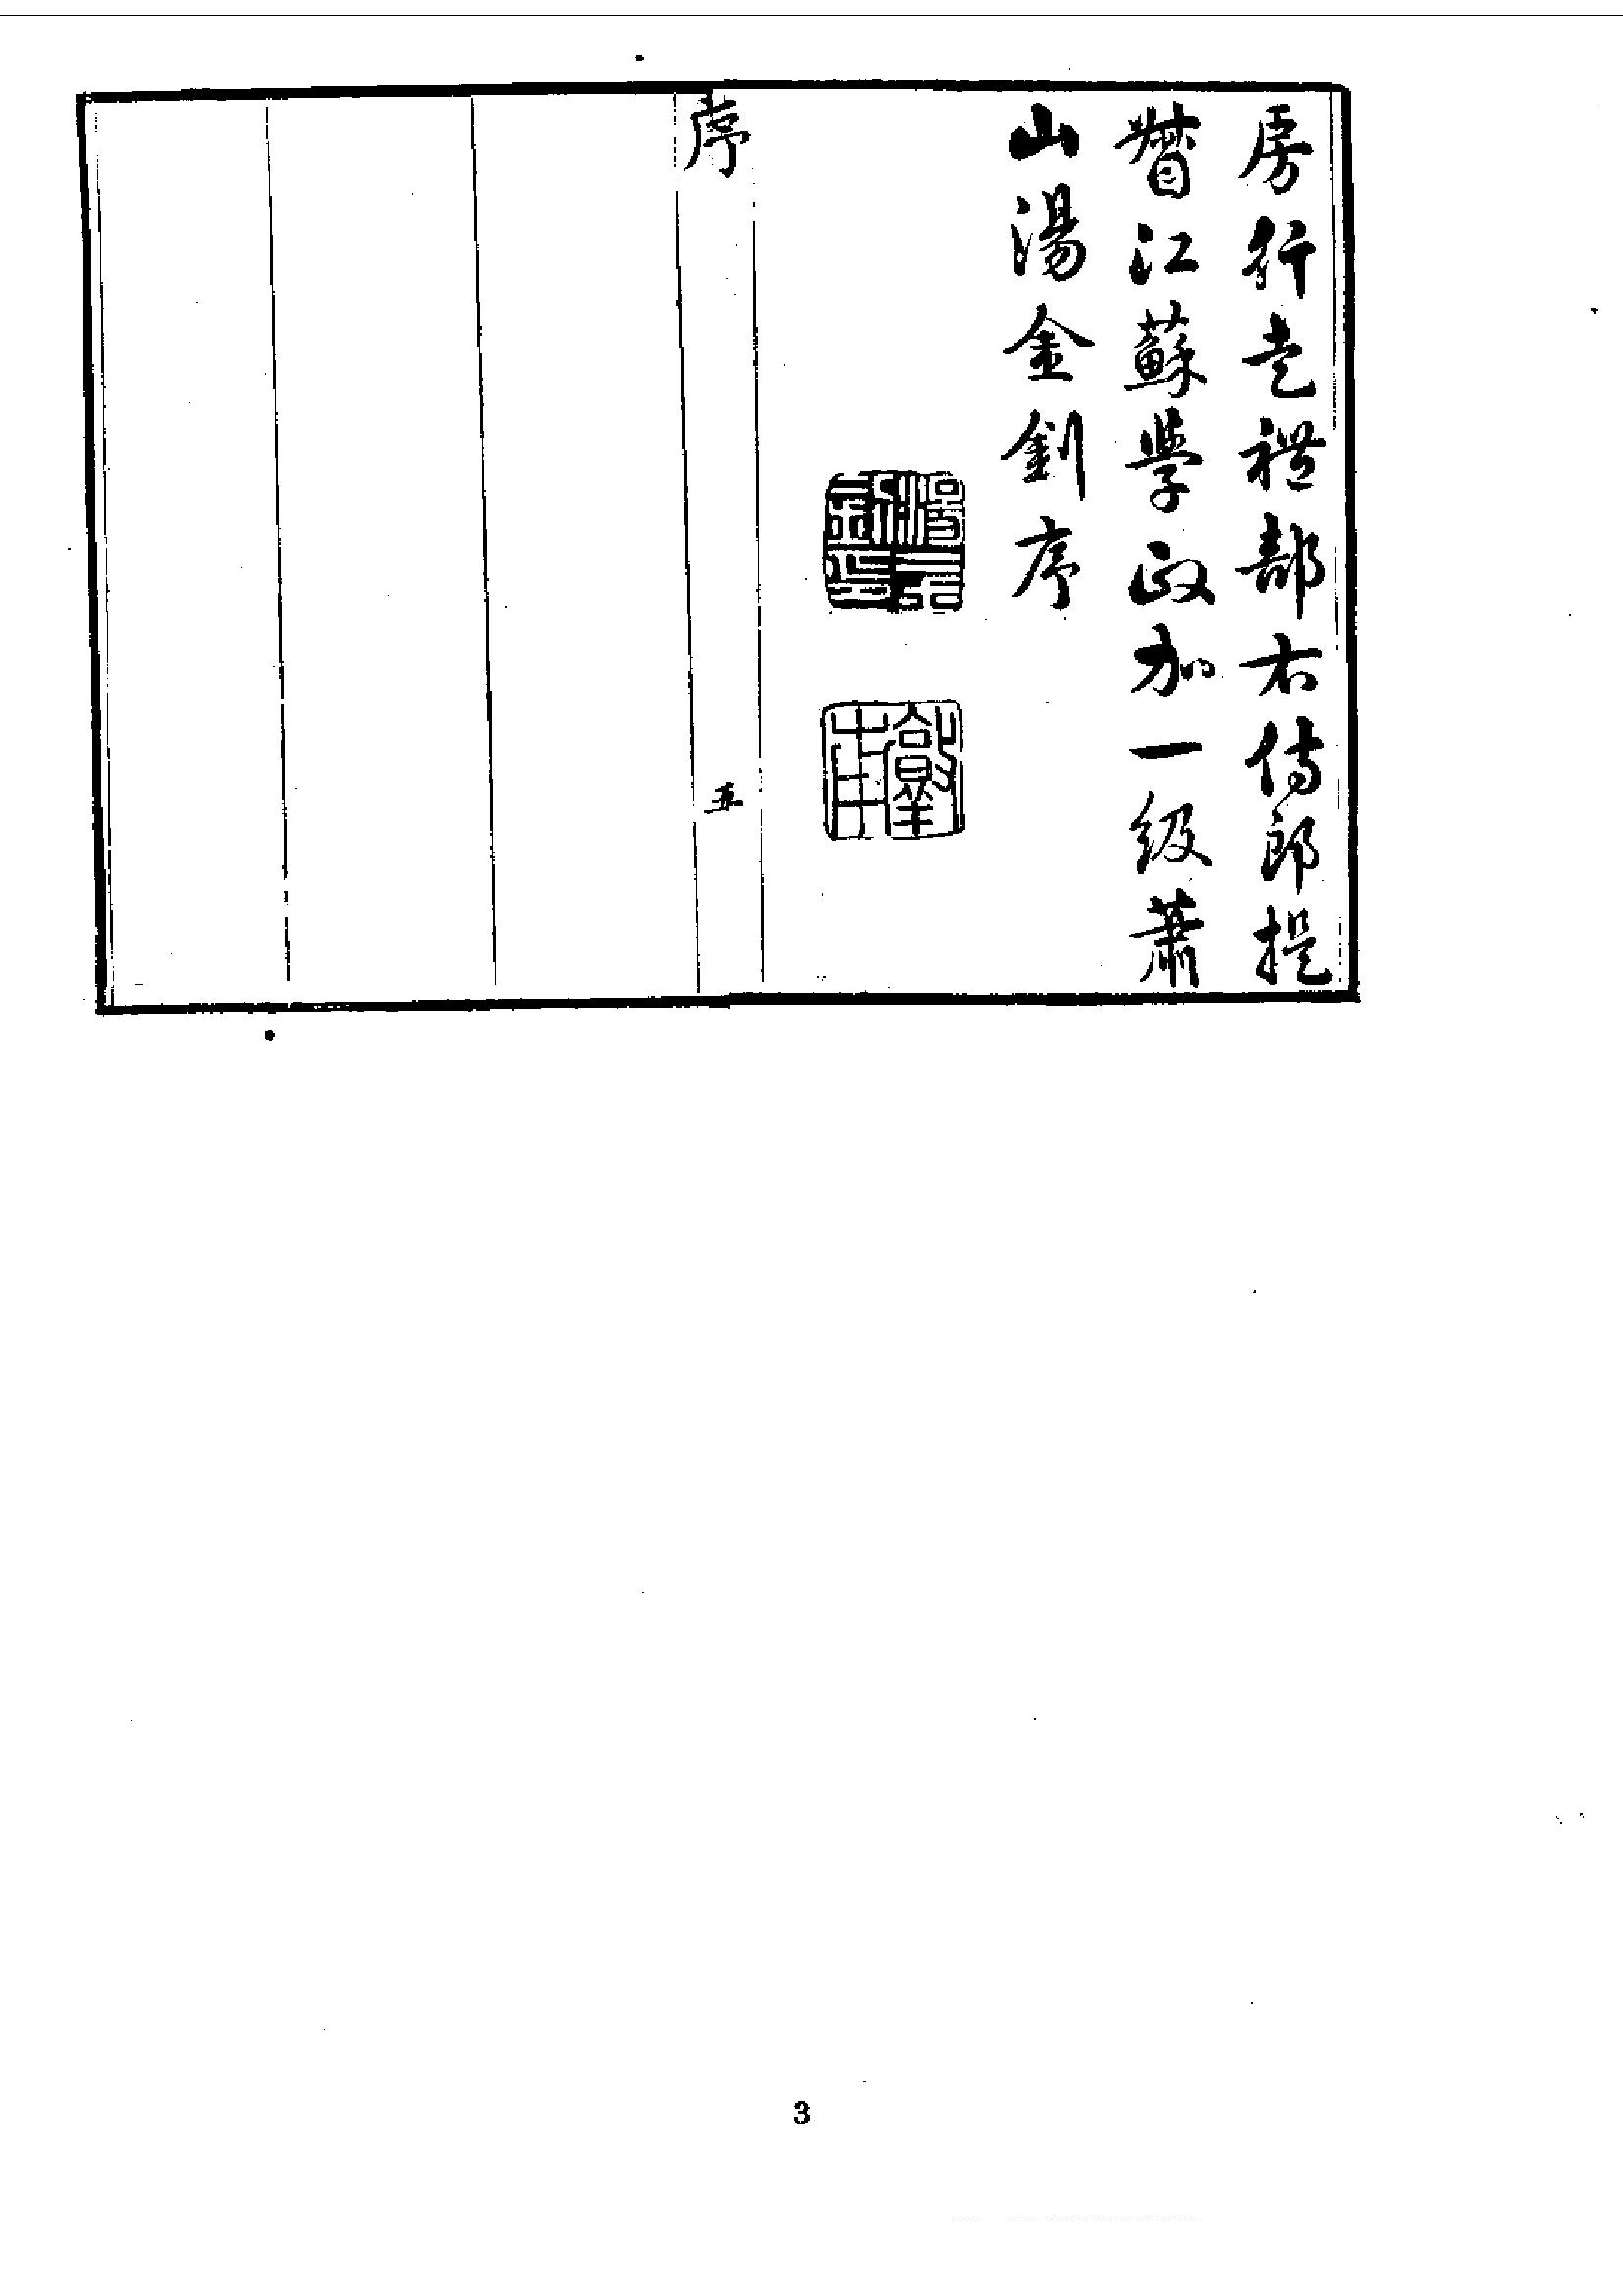 房行走禮部右侍郎提
督江蘇學政加一級蕭
山湯金釗序
湯金釗印
敦甫
序
五
3